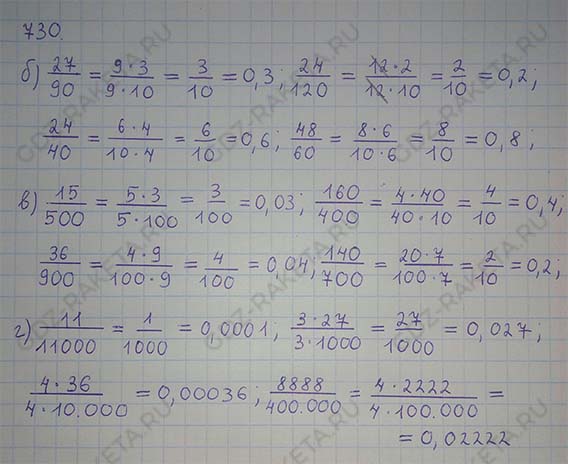 730.
б) 27/90 = 9·3/9·10 = 3/10 = 0,3; 24/120 = 12·2/12·10 = 2/10 = 0,2;
24/40 = 6·4/10·4 = 6/10 = 0,6; 48/60 = 8·6/10·6 = 8/10 = 0,8;
в) 15/500 = 5·3/5·100 = 3/100 = 0,03; 160/400 = 4·40/40·10 = 4/10 = 0,4;
36/900 = 4·9/100·9 = 4/100 = 0,04; 140/700 = 20·7/100·7 = 2/10 = 0,2;
г) 11/11000 = 1/1000 = 0,0001; 3·27/3·1000 = 27/1000 = 0,027;
4·36/4·10.000 = 0,00036; 8888/400.000 = 4·2222/4·100.000 =
= 0,02222
GDZ-RAKETA.RU